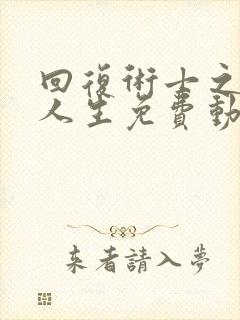 回復術士之
人生免費動
来者請入夢